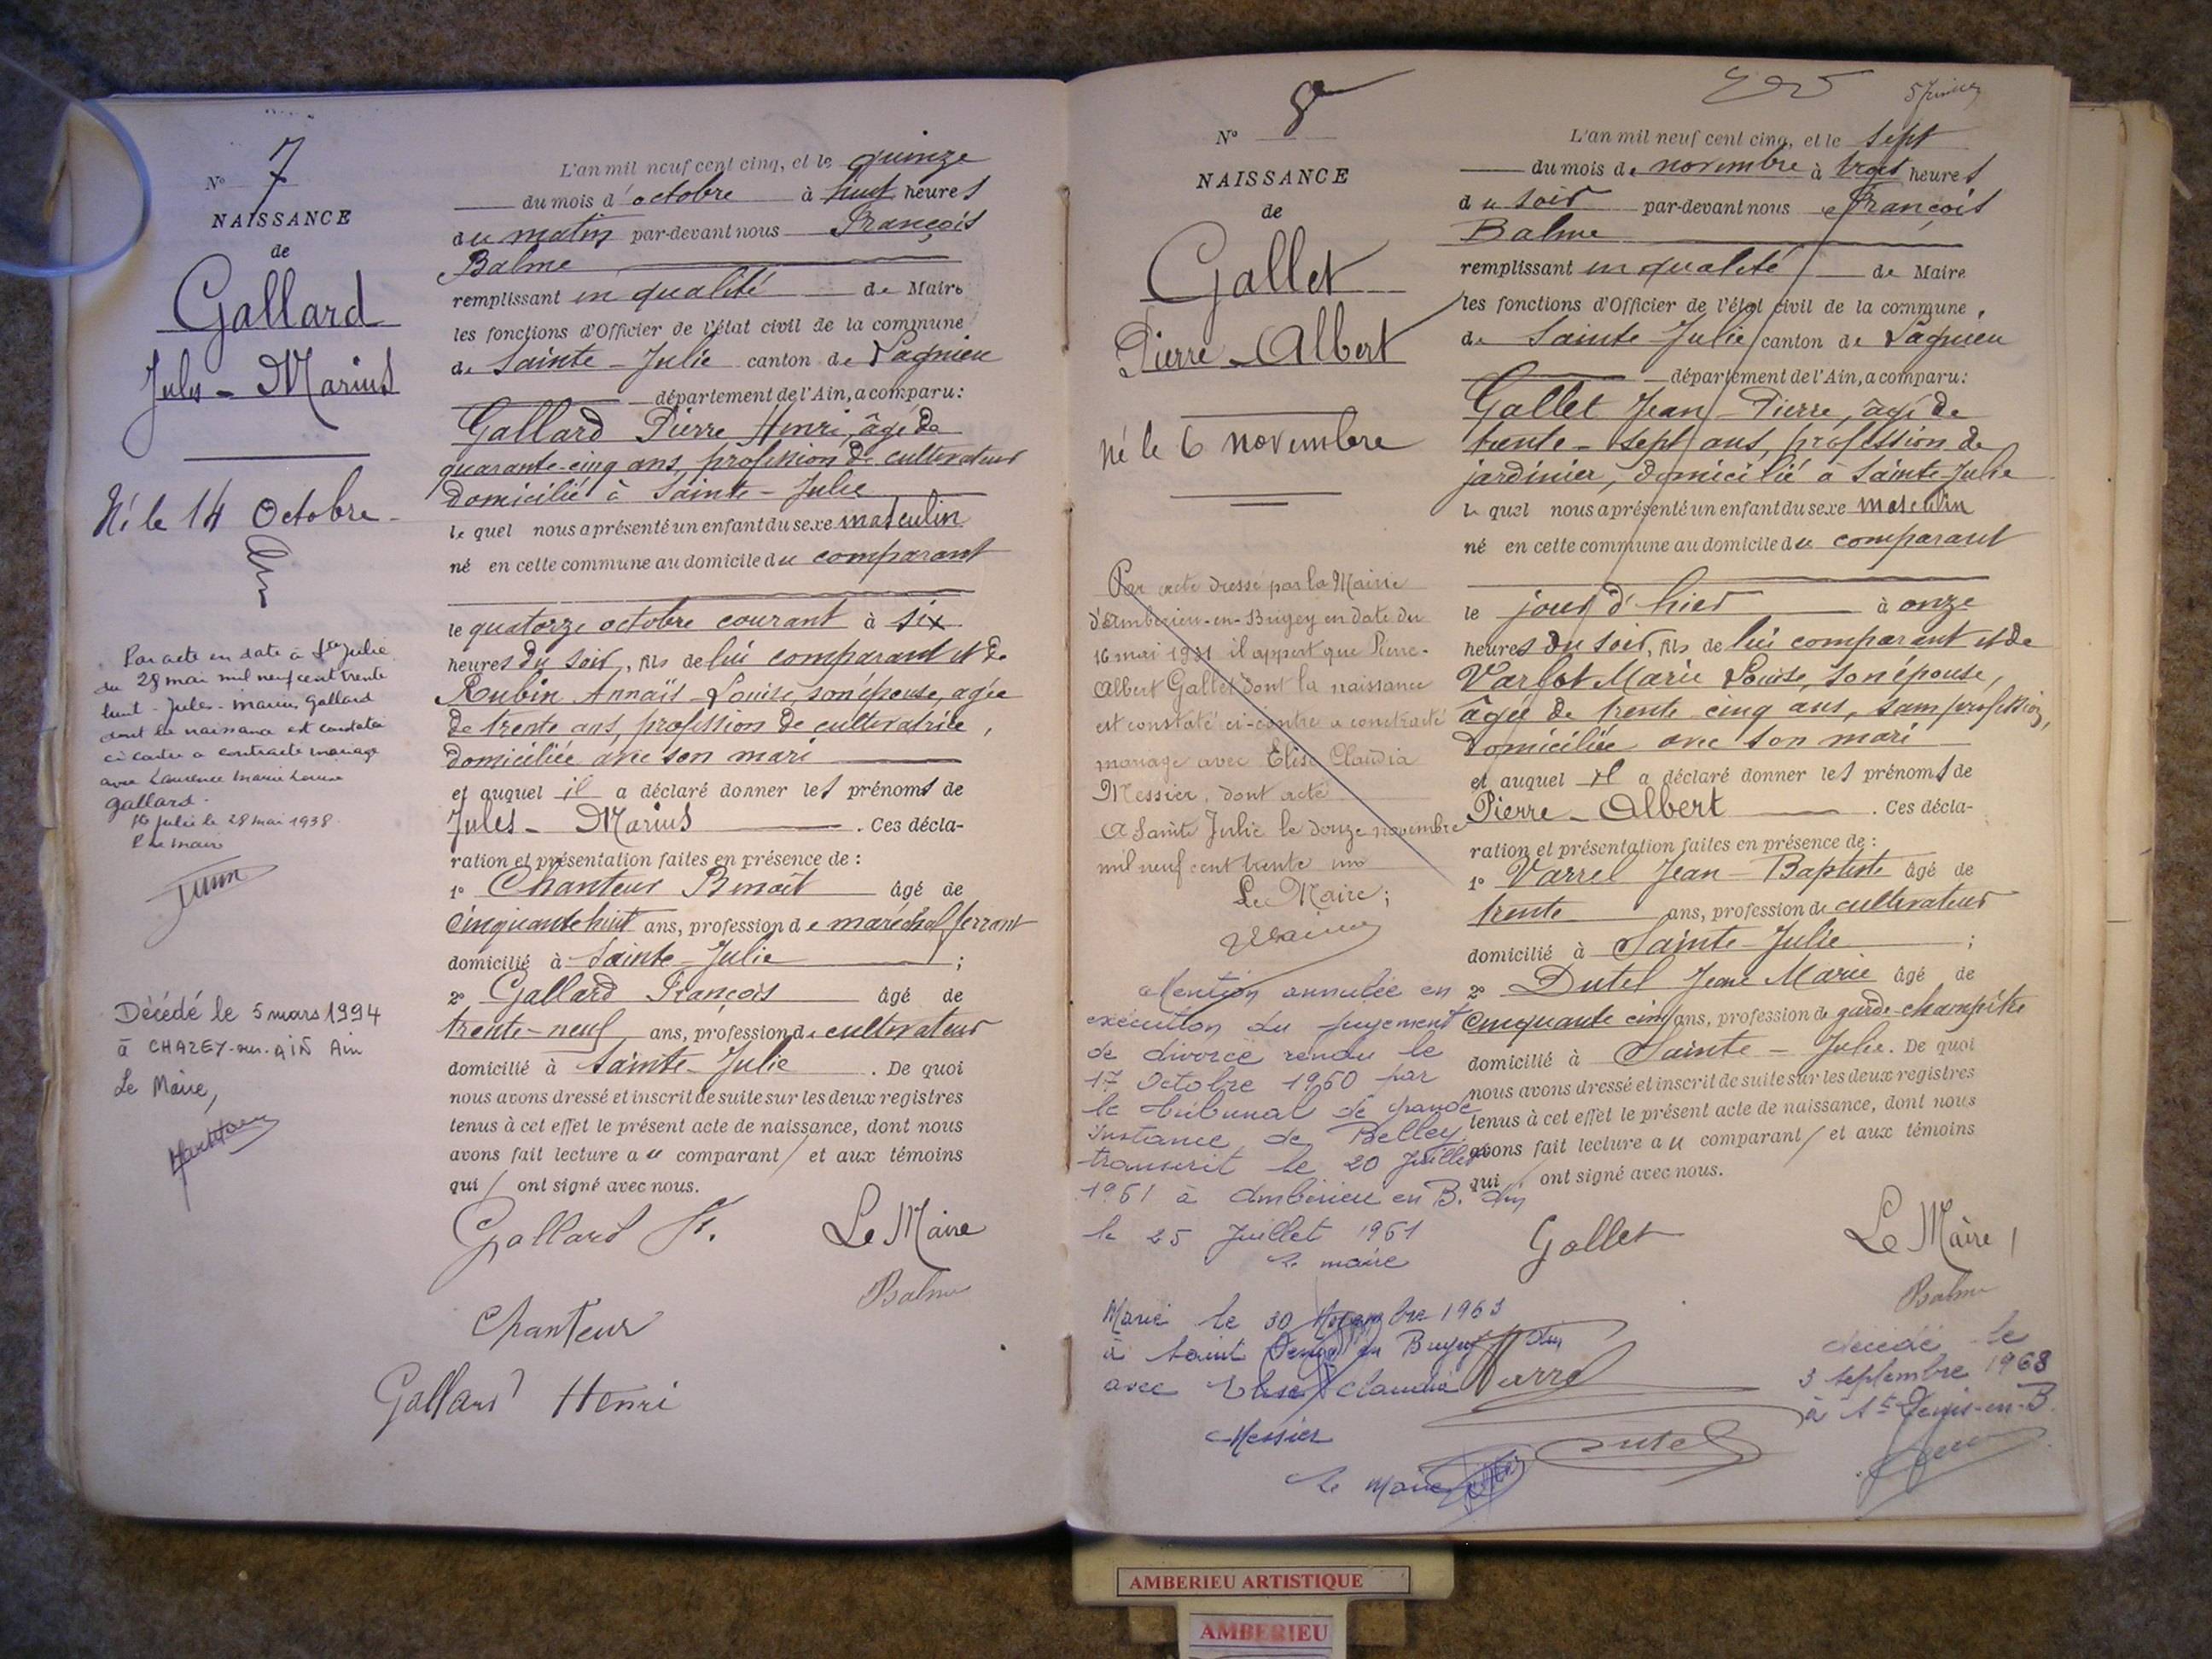 N° 7
NAISSANCE
de
Gallard
Jules-Marius
Né le 14 Octobre
Par acte en date à Ste Julie
du 28 mai mil neuf cent trente
huit - Jules-Marius Gallard
dont la naissance est constatée
ci contre a contracté mariage
avec Laurence Marie Louise
Gallard.
Ste Julie le 28 mai 1938
Le Maire
Décédé le 5 mars 1994
à CHAZEY-sur-AIN Ain
Le Maire,
L'an mil neuf cent cinq, et le quinze
du mois d'octobre à huit heures
du matin par-devant nous François
Balme
remplissant en qualité de Maire
les fonctions d'Officier de l'état civil de la commune
de Sainte-Julie canton de Lagnieu
département de l'Ain, a comparu:
Gallard Pierre Henri, âgé de
quarante-cinq ans, profession de cultivateur
domicilié à Sainte-Julie
lequel nous a présenté un enfant du sexe masculin
né en cette commune au domicile du comparant
le quatorze octobre courant à six
heures du soir, fils de lui comparant et de
Rubin Annaïs-Louise, son épouse, agée
de trente ans, profession de cultivatrice,
domiciliée avec son mari
et auquel il a déclaré donner les prénoms de
Jules-Marius. Ces décla-
ration et présentation faites en présence de :
1° Chanteur Benoit âgé de
cinquante huit ans, profession de maréchal ferrant
domicilié à Sainte-Julie ;
2° Gallard François âgé de
trente-neuf ans, profession de cultivateur
domicilié à Sainte-Julie. De quoi
nous avons dressé et inscrit de suite sur les deux registres
tenus à cet effet le présent acte de naissance, dont nous
avons fait lecture au comparant et aux témoins
qui ont signé avec nous.
Gallard F. Le Maire
Balme
Chanteur
Gallard Henri
N° 8
NAISSANCE
de
Gallet
Pierre-Albert
Né le 6 novembre
Par acte dressé par la Mairie
d'Ambérieu-en-Bugey en date du
16 mai 1931 il appert que Pierre-
Albert Gallet dont la naissance
est constaté ci-contre a contracté
mariage avec Elise Claudia
Messier, dont acte
A Sainte Julie le douze novembre
mil neuf cent trente un
Le Maire;
Mention annulée en
exécution du jugement
de divorce rendu le
17 Octobre 1960 par
le tribunal de grande
instance de Belley
transcrit le 20 Juillet
1961 à Ambérieu en B. Ain
le 25 Juillet 1961
le maire
Marié le 30 1963
à Saint Denis en Bugey Ain
avec Elise Claudia
Messier
le Maire
5 Janvier
L'an mil neuf cent cinq, et le sept
du mois de novembre à trois heures
du soir par-devant nous François
Balme
remplissant en qualité de Maire
les fonctions d'Officier de l'état civil de la commune
de Sainte-Julie canton de Lagnieu
département de l'Ain, a comparu:
Gallet Jean-Pierre, âgé de
trente-sept ans, profession de
jardinier, domicilié à Sainte-Julie
lequel nous a présenté un enfant du sexe masculin
né en cette commune au domicile du comparant
le jour d'hier à onze
heures du soir, fils de lui comparant et de
Varlot Marie Louise, son épouse,
âgée de trente cinq ans, sans profession,
domiciliée avec son mari
et auquel il a déclaré donner les prénoms de
Pierre-Albert. Ces décla-
ration et présentation faites en présence de :
1° Varrel Jean-Baptiste âgé de
trente ans, profession de cultivateur
domicilié à Sainte-Julie ;
2° Dutel Jean Marie âgé de
cinquante cinq ans, profession de garde-champêtre
domicilié à Sainte-Julie. De quoi
nous avons dressé et inscrit de suite sur les deux registres
tenus à cet effet le présent acte de naissance, dont nous
avons fait lecture au comparant et aux témoins
qui ont signé avec nous.
Gallet Le Maire,
Balme
Varrel
Dutel
décédé le
3 septembre 1968
à St Denis-en-B.
AMBERIEU ARTISTIQUE
AMBERIEU